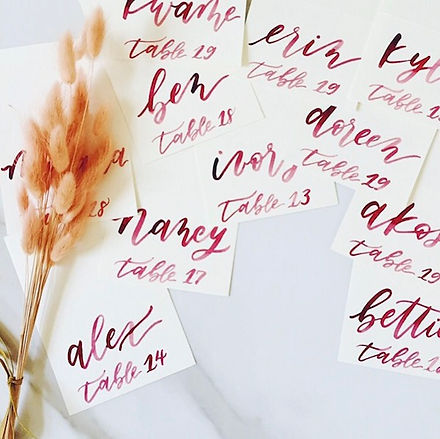 kwame
table 19
erin
table 19
kyl
table
ben
table 18
doreen
table 19
ivory
table 13
18
nancy
table 17
akos
table 19
alex
table 14
betti
table